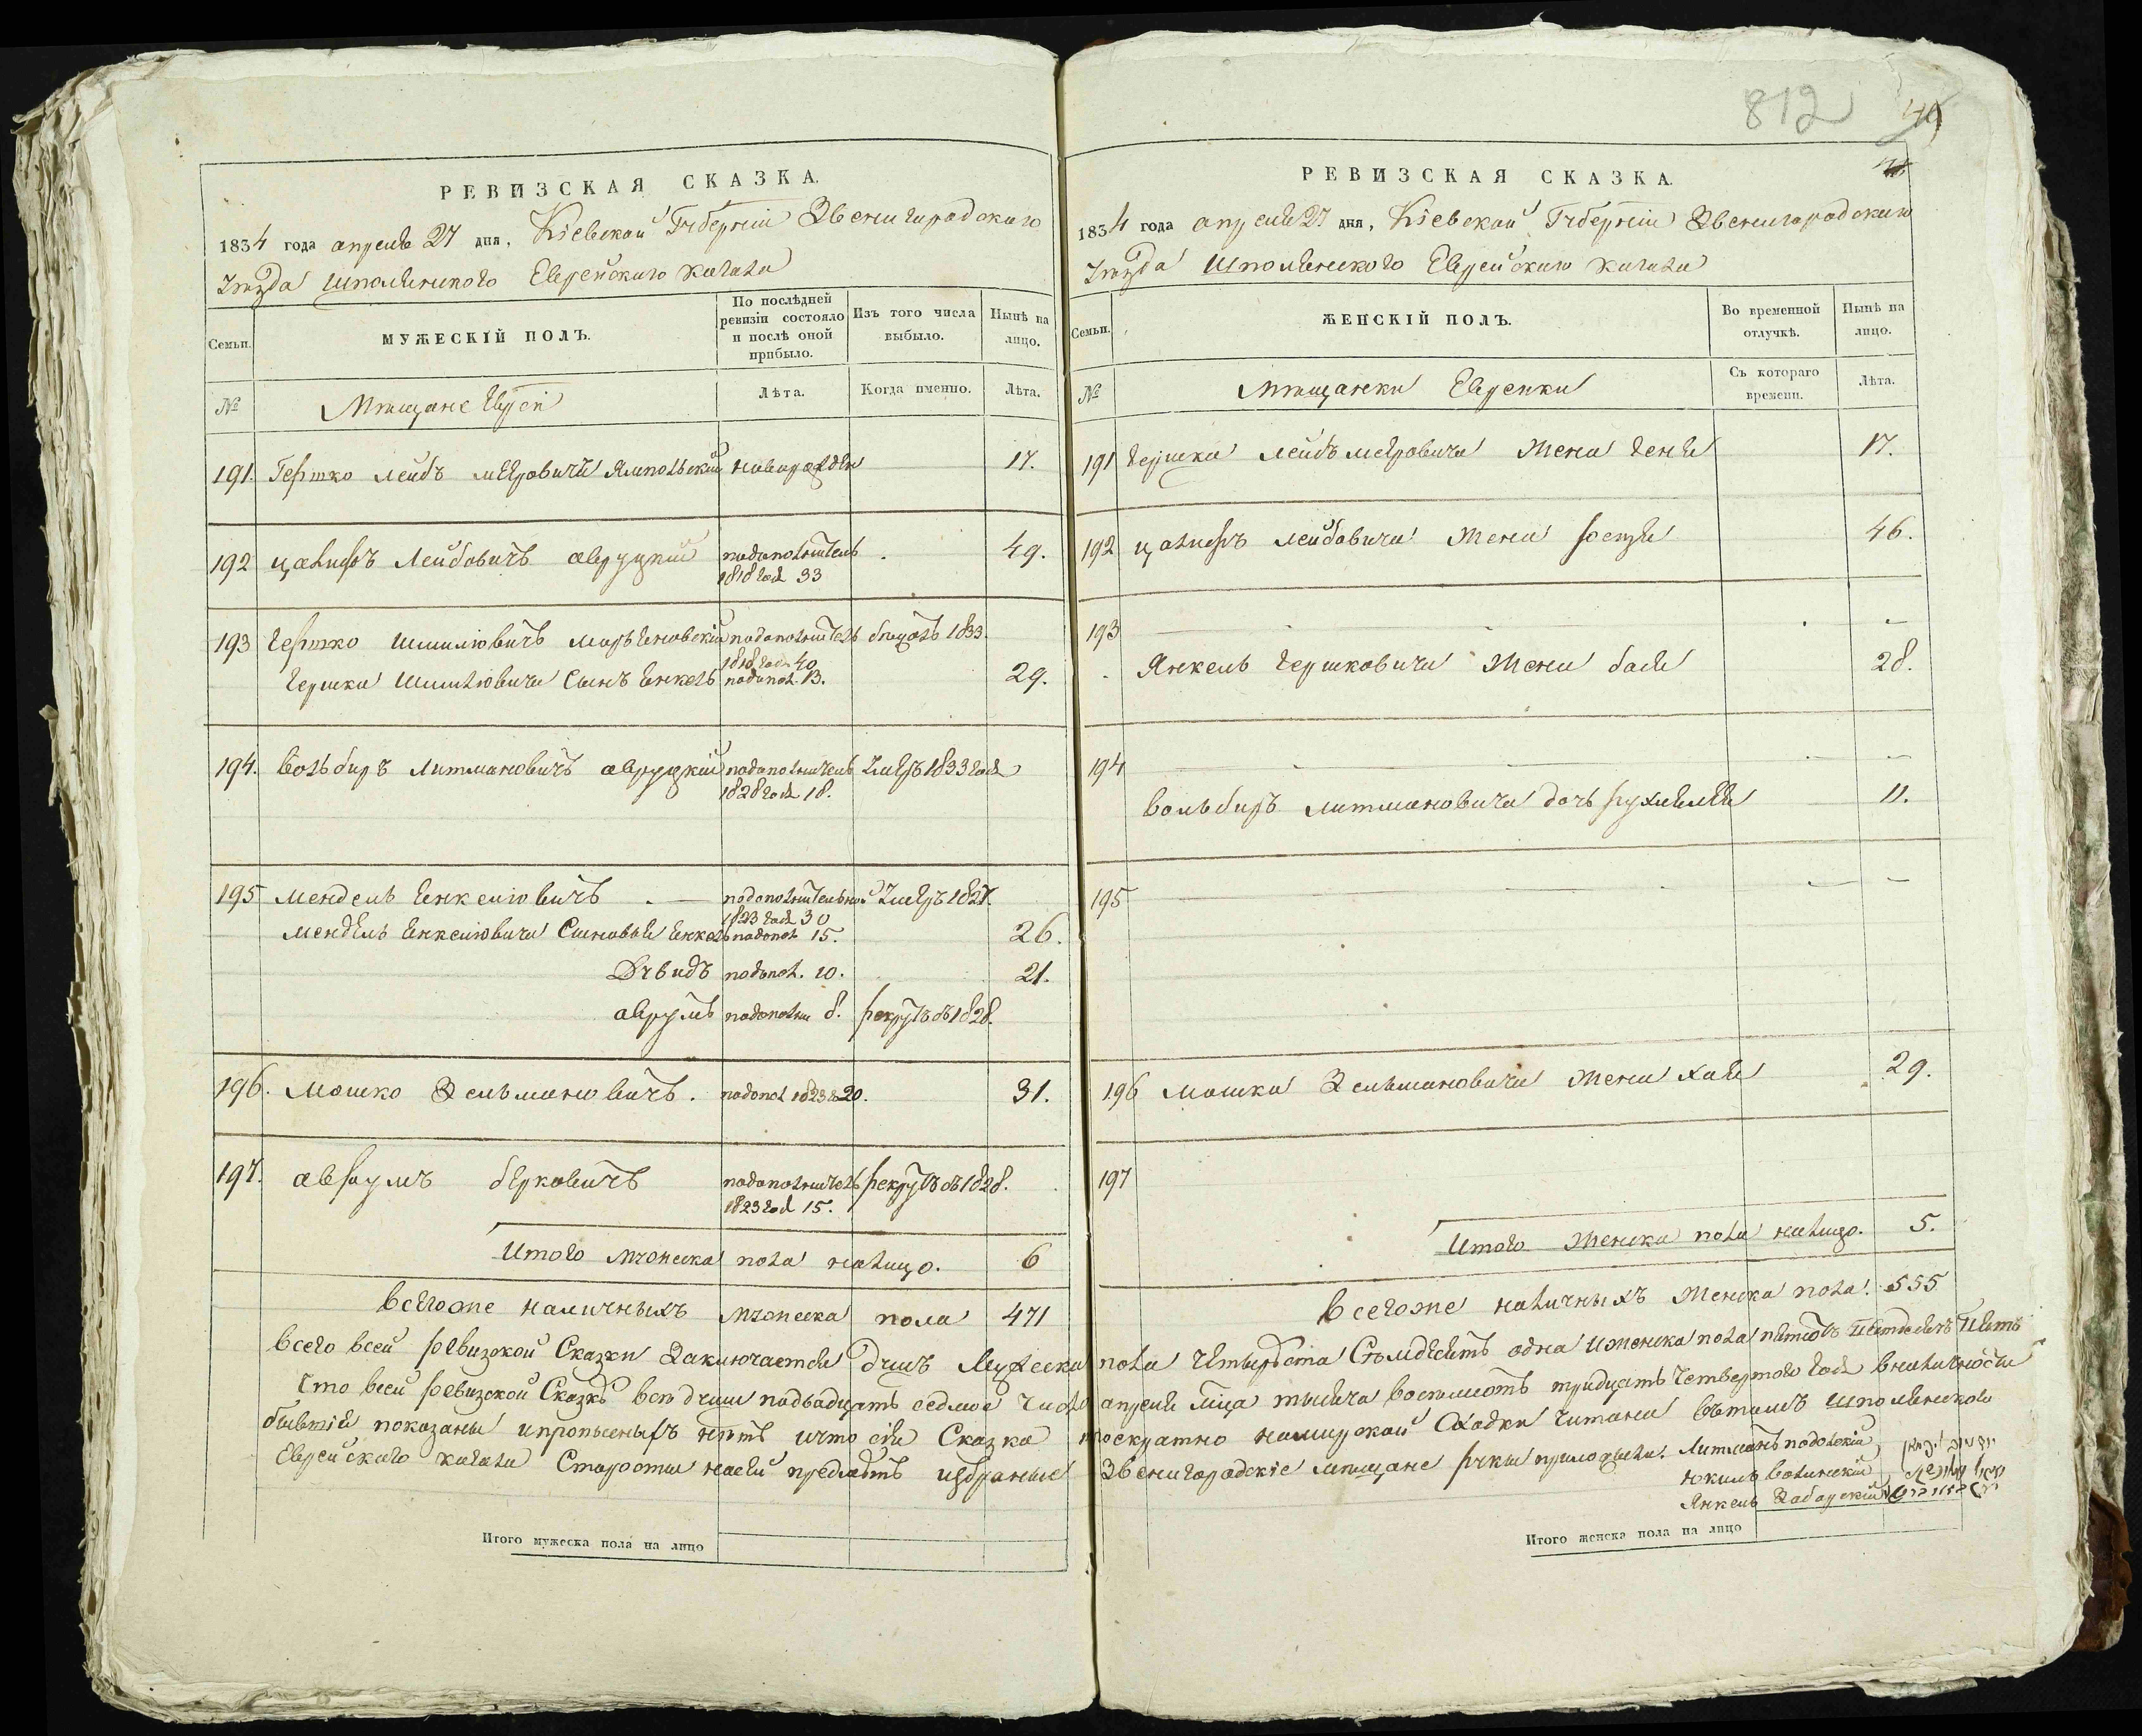 812
РЕВИЗСКАЯ СКАЗКА.
1834 года апреля 27 дня, Кіевской Губерніи Звенигородскаго
Уезда Шполянского Еврейскаго кагала
Семьи.
МУЖЕСКІЙ ПОЛЪ.
По послѣдней ревизіи состояло и послѣ оной прибыло.
Изъ того числа выбыло.
Нынѣ на лицо.
№
Мещане Евреи
Лѣта.
Когда именно.
Лѣта.
191. Гершко Лейбъ Меровичъ Ямпольский новорожден 17.
192 Цалифъ Лейбовичъ авруцкий подополнитель 49.
1818 года 33
193 Гершко Шмилювичъ Марьяновскій подополнитель 1833.
1818 года 40
Гершка Шмилювича Сынъ Янкель подопол. 13. 29.
194. Вольбиръ Литмановичъ аврупкій подополнитель Умеръ 1833 года
1828 года 18.
195 Мендель Янкелювичъ подополнительной Умеръ 1827.
1823 года 30
Мендель Янкелювича Сыновья Янкель подопол 15. 26.
Дувидъ подопол. 10. 21.
аврумъ подополни 8. рекрутъ въ 1828.
196. Мошко Зельмановичъ. подопол 1823 г 20. 31.
197. аврумъ Берковичъ подополнитель рекрутъ въ 1828.
1823 год 15.
Итого мужеска пола налицо. 6
Всегоже наличныхъ мужеска пола 471
Итого мужеска пола на лицо
РЕВИЗСКАЯ СКАЗКА.
1834 года апреля 27 дня, Кіевской Губерніи Звенигородскаго
Уезда Шполянского Еврейскаго кагала
Семьи.
ЖЕНСКІЙ ПОЛЪ.
Во временной отлучкѣ.
Нынѣ на лицо.
№
Мещанки Еврейки
Съ котораго времени.
Лѣта.
191 Гершка Лейбъ Меровича жена Геня 17.
192 Цалифъ Лейбовича жена Рейзя 46.
193
Янкель Гершковича жена Бася 28.
194
Вольбиръ Литмановича дочь Рухля 11.
195
196 Мошка Зельмановича жена Хая 29.
197
Итого женска пола налицо. 5.
Всегоже наличныхъ женска пола. 555
Всего всей ревизской Сказки Заключается душъ Мужеска пола четыреста Семдесятъ одна и женска пола пятсотъ пятдесятъ пять
Что всей ревизской Сказкѣ все души подвадцать седмое число апреля м͠ца тысяча восемсотъ тридцать четвертого года вналичности
бывшія показаны и пропысеныхъ нѣтъ и что сія Сказка троекратно намирской Сходки читана вътомъ Шполянского
Еврейскаго кагала Старосты насей предметъ избраные Звенигородскіе мещане руки приложили. Литманъ подольскій
Юкиль Волинскій
Янкель Забарский
Итого женска пола на лицо